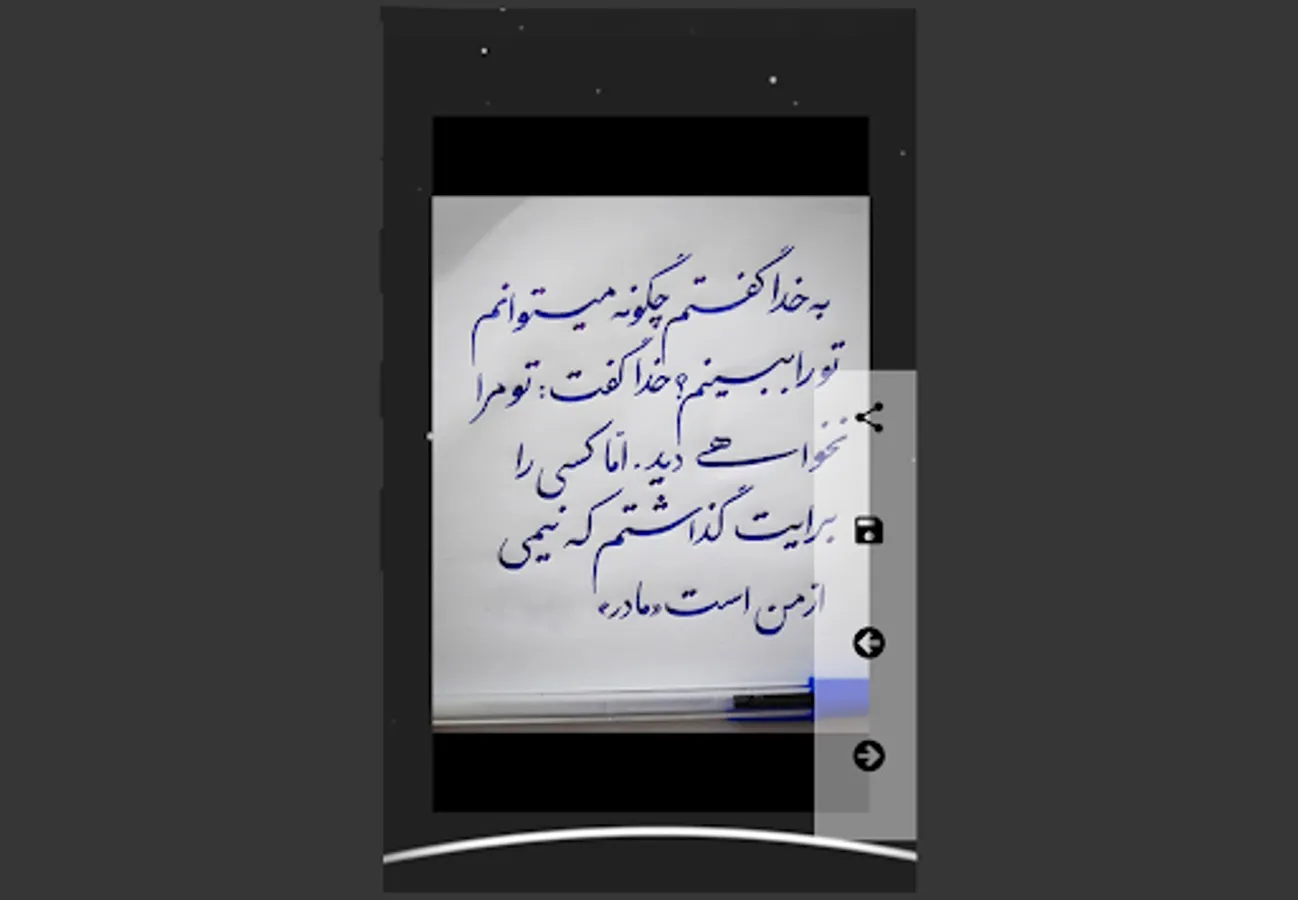 به خدا گفتم چگونه میتوانم
تو را ببینم؟ خدا گفت: تو مرا
نخواهے دید. امّا کسی را
برایت گذاشتم که نیمی
از من است «مادر»